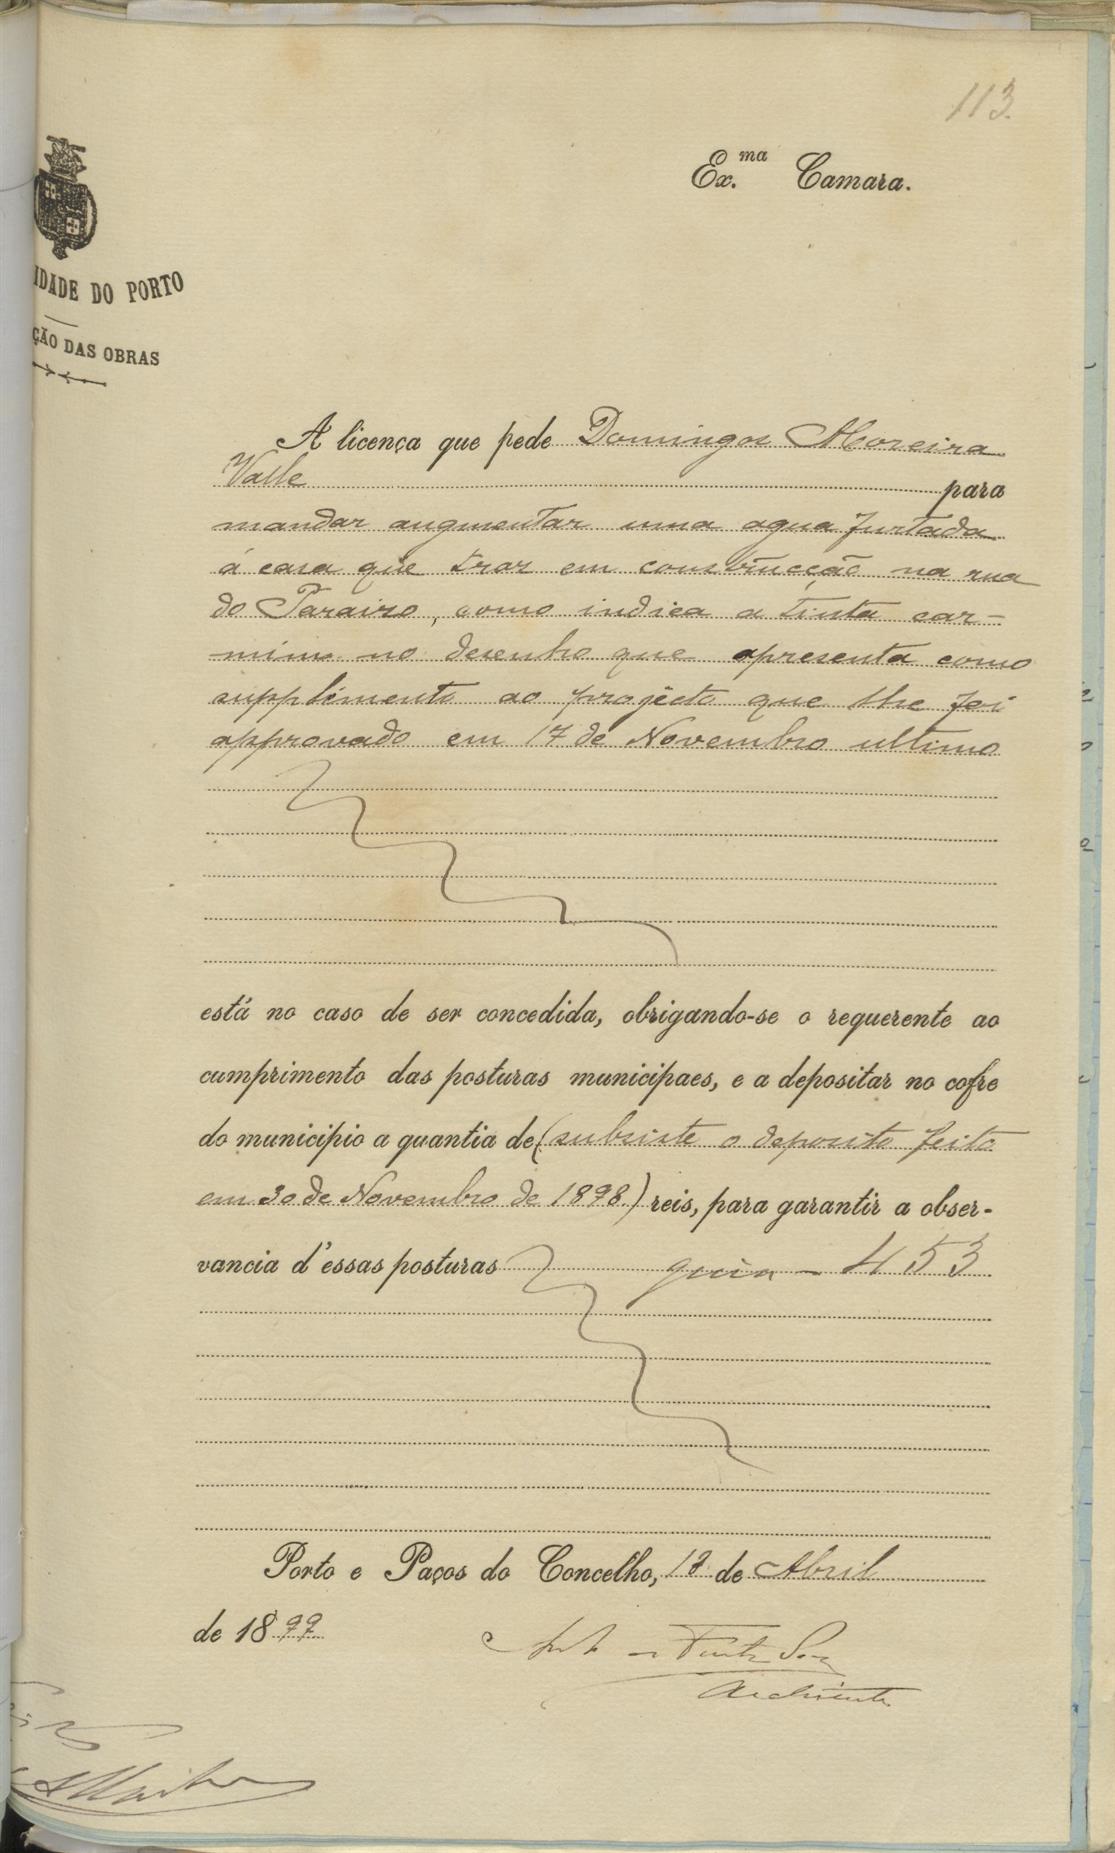 113.
Ex.ma Camara.
IDADE DO PORTO
ÇÃO DAS OBRAS
A licença que pede Domingos Moreira
Valle para
mandar augmentar uma agua furtada
á casa que traz em construcção na rua
do Paraizo, como indica a tinta car-
mim no desenho que apresenta como
supplemento ao projecto que lhe foi
approvado em 17 de Novembro ultimo
está no caso de ser concedida, obrigando-se o requerente ao
cumprimento das posturas municipaes, e a depositar no cofre
do municipio a quantia de (subsiste o deposito feito
em 30 de Novembro de 1898) reis, para garantir a obser-
vancia d'essas posturas guia - 453
Porto e Paços do Concelho, de Abril
de 1899
Architecto